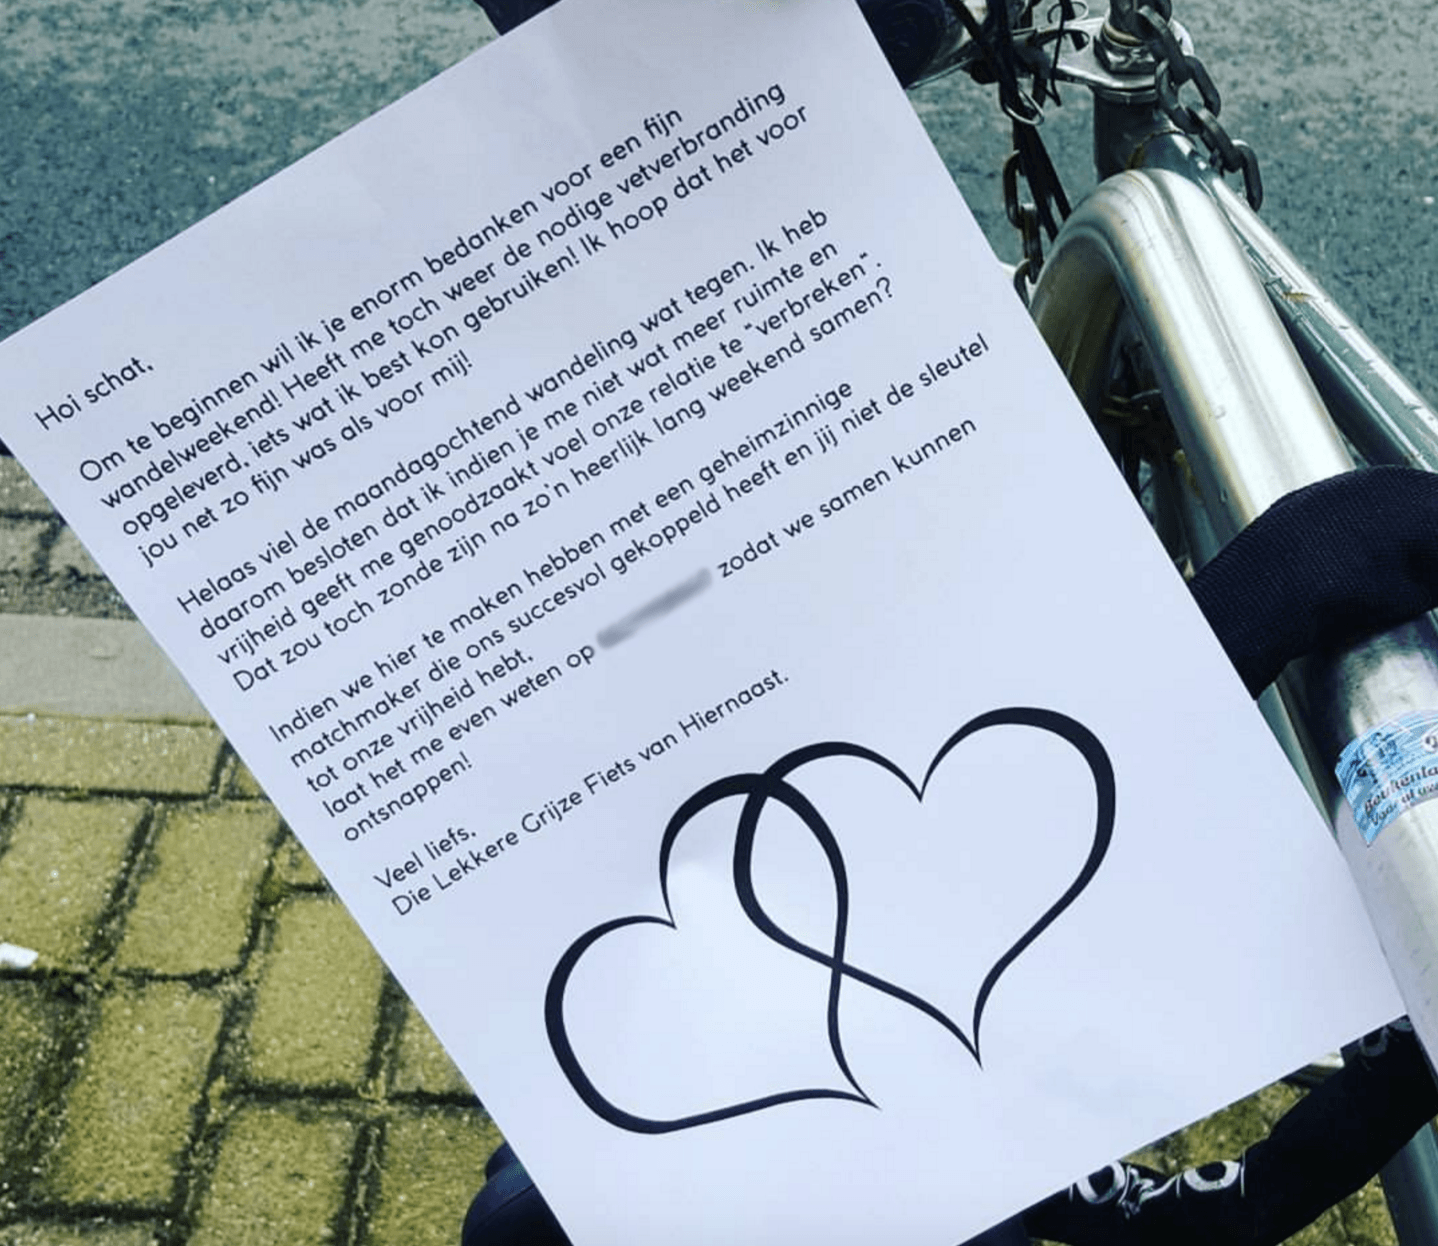 Hoi schat,
Om te beginnen wil ik je enorm bedanken voor een fijn
wandelweekend! Heeft me toch weer de nodige vetverbranding
opgeleverd, iets wat ik best kon gebruiken! Ik hoop dat het voor
jou net zo fijn was als voor mij!
Helaas viel de maandagochtend wandeling wat tegen. Ik heb
daarom besloten dat ik indien je me niet wat meer ruimte en
vrijheid geeft me genoodzaakt voel onze relatie te "verbreken".
Dat zou toch zonde zijn na zo'n heerlijk lang weekend samen?
Indien we hier te maken hebben met een geheimzinnige
matchmaker die ons succesvol gekoppeld heeft en jij niet de sleutel
tot onze vrijheid hebt,
laat het me even weten op zodat we samen kunnen
ontsnappen!
Veel liefs,
Die Lekkere Grijze Fiets van Hiernaast.